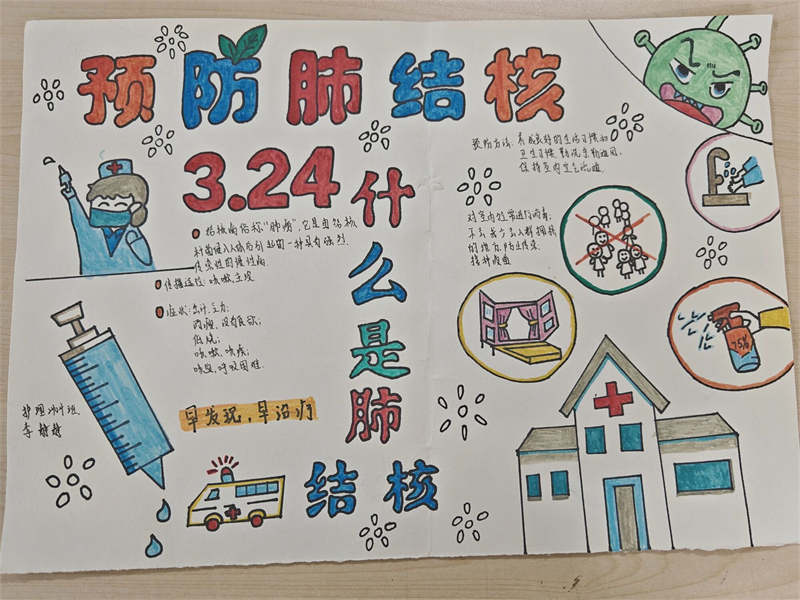 预防肺结核
3.24
什么是肺
结核
结核病俗称“肺痨”,它是由结核
杆菌侵入人体后引起的一种具有强烈
传染性的慢性病
传播途径:咳嗽,
症状:出汗,乏力;
消瘦,没有食欲;
低烧;
咳嗽,咳痰;
呼吸困难
早发现,早治疗
护理
李
预防方法:养成良好的生活习惯和
卫生习惯,勤洗
保持室内空气流通
对室内经常进行消毒;
不去或少去人群拥挤
的地方,防止传染
接种疫苗
75%